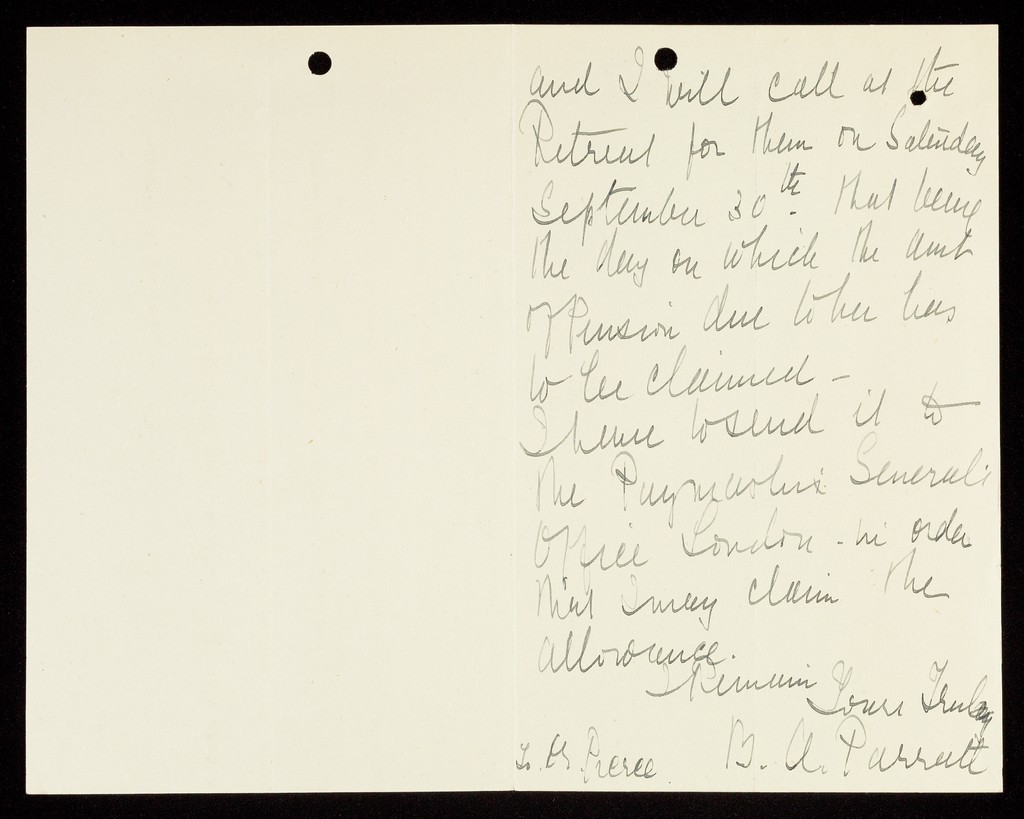 and I will call at the
Retreat for them on Saturday
September 30th. that being
the day on which the amt
of Pension due to her has
to be claimed -
I have to send it to
the Paymaster Generals
Office London - in order
that I may claim the
allowance.
I Remain
Yours Truly
B. A. Parratt
To. Dr. Pierce